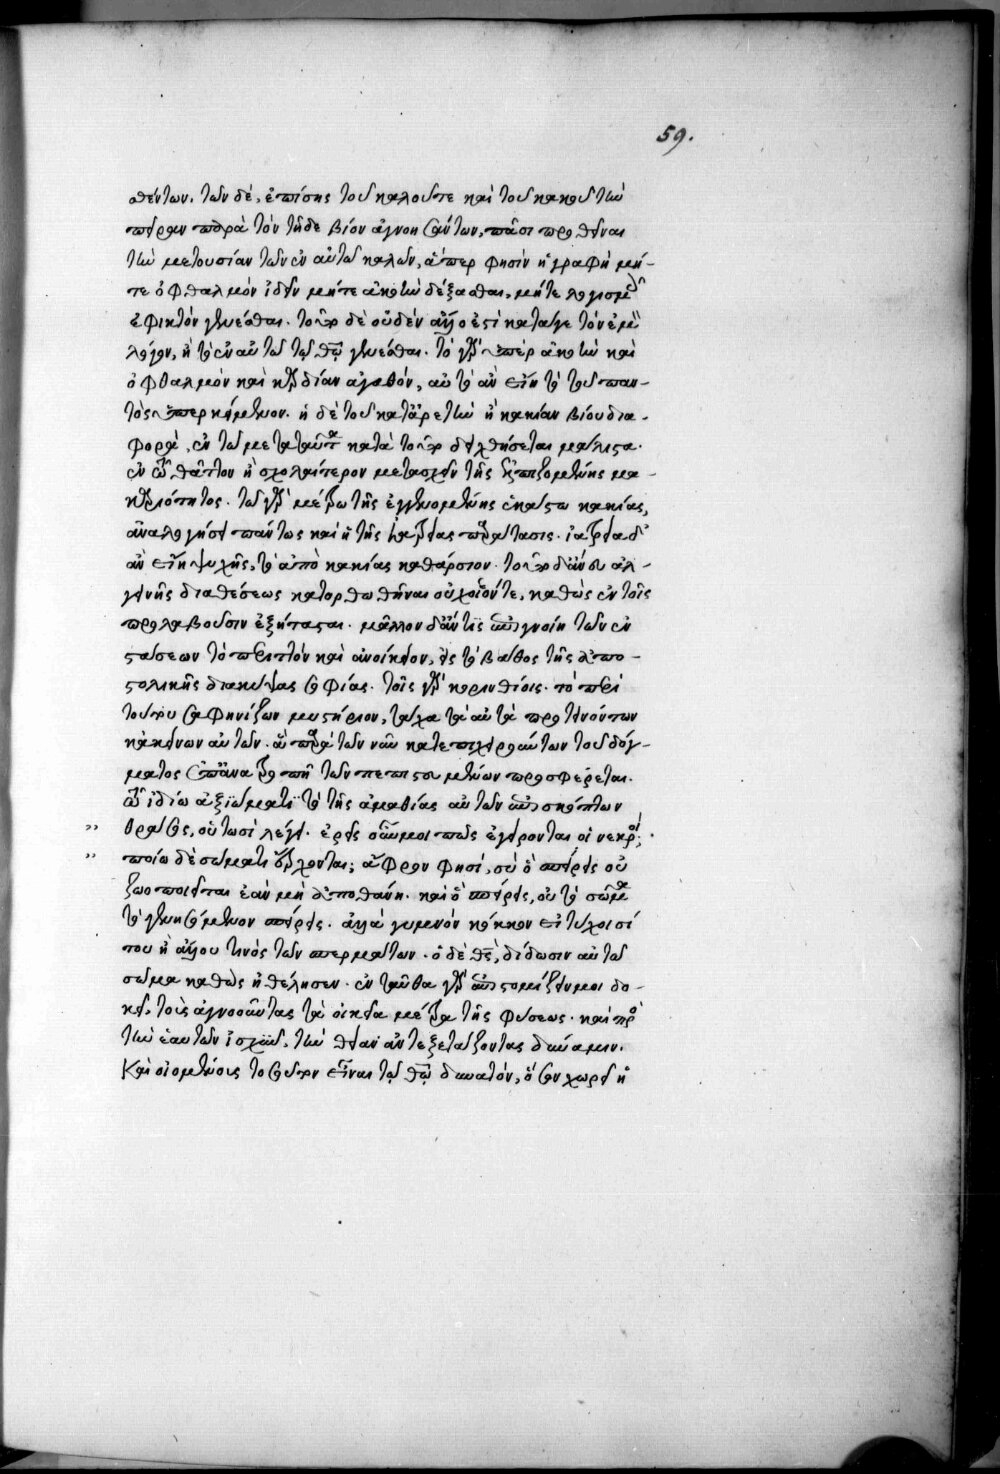 59.
θέντων. τῶν δὲ, ἐπίσης τοῦ καλοῦ τε καὶ τοῦ κακοῦ τὴν
πεῖραν παρὰ τὸν τῇδε βίον ἀγνοησάντων, πᾶσι προθεῖναι
τὴν μετουσίαν τῶν ἐν αὐτῷ καλῶν, ἅπερ φησὶν ἡ γραφὴ μή-
τε ὀφθαλμὸν ἰδεῖν μήτε ἀκοὴν δέξασθαι, μήτε λογισμοῖς
ἐφικτὸν γενέσθαι. τοῦτο δὲ οὐδὲν ἄλλο ἐστὶ κατά γε τὸν ἐμὸν
λόγον, ἢ τὸ ἐν αὐτῷ τῷ θ̅ω̅ γενέσθαι. τὸ γὰρ ὑπὲρ ἀκοὴν καὶ
ὀφθαλμὸν καὶ καρδίαν ἀγαθὸν, αὐτὸ ἂν εἴη τὸ τοῦ παν-
τὸς ὑπερκείμενον. ἡ δὲ τοῦ κατ' ἀρετὴν ἢ κακίαν βίου δια-
φορὰ, ἐν τῷ μετὰ ταῦτα κατὰ τοῦτο δειχθήσεται μάλιστα.
ἐν τῷ θᾶττον ἢ σχολαίτερον μετασχεῖν τῆς ἐλπιζομένης μα-
καριότητος. τῷ γὰρ μέτρῳ τῆς ἐγγενομένης ἑκάστῳ κακίας,
ἀναλογήσει πάντως καὶ ἡ τῆς ἰατρείας παράτασις. ἰατρεία δ'
ἂν εἴη ψυχῆς, τὸ ἀπὸ κακίας καθάρσιον. τοῦτο δ' ἄνευ ἀλ-
γεινῆς διαθέσεως κατορθωθῆναι οὐχ οἷόν τε, καθὼς ἐν τοῖς
προλαβοῦσιν ἐξήτασται. μᾶλλον δ' ἄν τις ἐπιγνοίη τῶν ἐν
στάσεων τὸ περιττὸν καὶ ἀνοίκειον, εἰς τὸ βάθος τῆς ἀπο-
στολικῆς διακύψας σοφίας. τοῖς γὰρ κορινθίοις. τὸ περὶ
τούτου σαφηνίζων μυστήριον, τάχα τὰ αὐτὰ προτεινόντων
κἀκείνων αὐτῶν. ἃ παρὰ τῶν νῦν κατεπιχειρούντων τοῦ δόγ-
ματος ἐπ' ἀνατροπῇ τῶν πεπιστευμένων προσφέρεται.
τῷ ἰδίῳ ἀξιώματι τὸ τῆς ἀμαθίας αὐτῶν ἐπισκόπτων
θράσος, οὑτωσὶ λέγει. ἐρεῖς οὖν μοι πῶς ἐγείρονται οἱ νεκροί;
ποίῳ δὲ σώματι ἔρχονται; ἄφρον φησί, σὺ ὃ σπείρεις οὐ
ζωοποιεῖται ἐὰν μὴ ἀποθάνῃ. καὶ ὃ σπείρεις, οὐ τὸ σῶμα
τὸ γενησόμενον σπείρεις. ἀλλὰ γυμνὸν κόκκον εἰ τύχοι σί
του ἢ ἄλλου τινὸς τῶν σπερμάτων. ὁ δὲ θ̅ς̅, δίδωσιν αὐτῷ
σῶμα καθὼς ἠθέλησεν. ἐνταῦθα γὰρ ἐπιστομίζειν μοι δο-
κεῖ, τοὺς ἀγνοοῦντας τὰ οἰκεῖα μέτρα τῆς φύσεως. καὶ πρὸς
τὴν ἑαυτῶν ἰσχὺν, τὴν θείαν ἀντεξετάζοντας δύναμιν.
Καὶ οἰομένοις τοσοῦτον εἶναι τῷ θ̅ω̅ δυνατὸν, ὅσον χωρεῖ ἡ